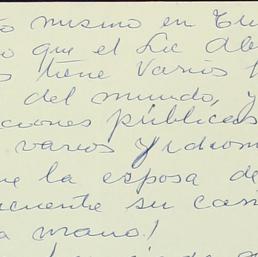 mismo en
que el Lic
tiene varios
del mundo, y
ciones públicas
varios y idiom
la esposa de
cuente su cas
a mano!